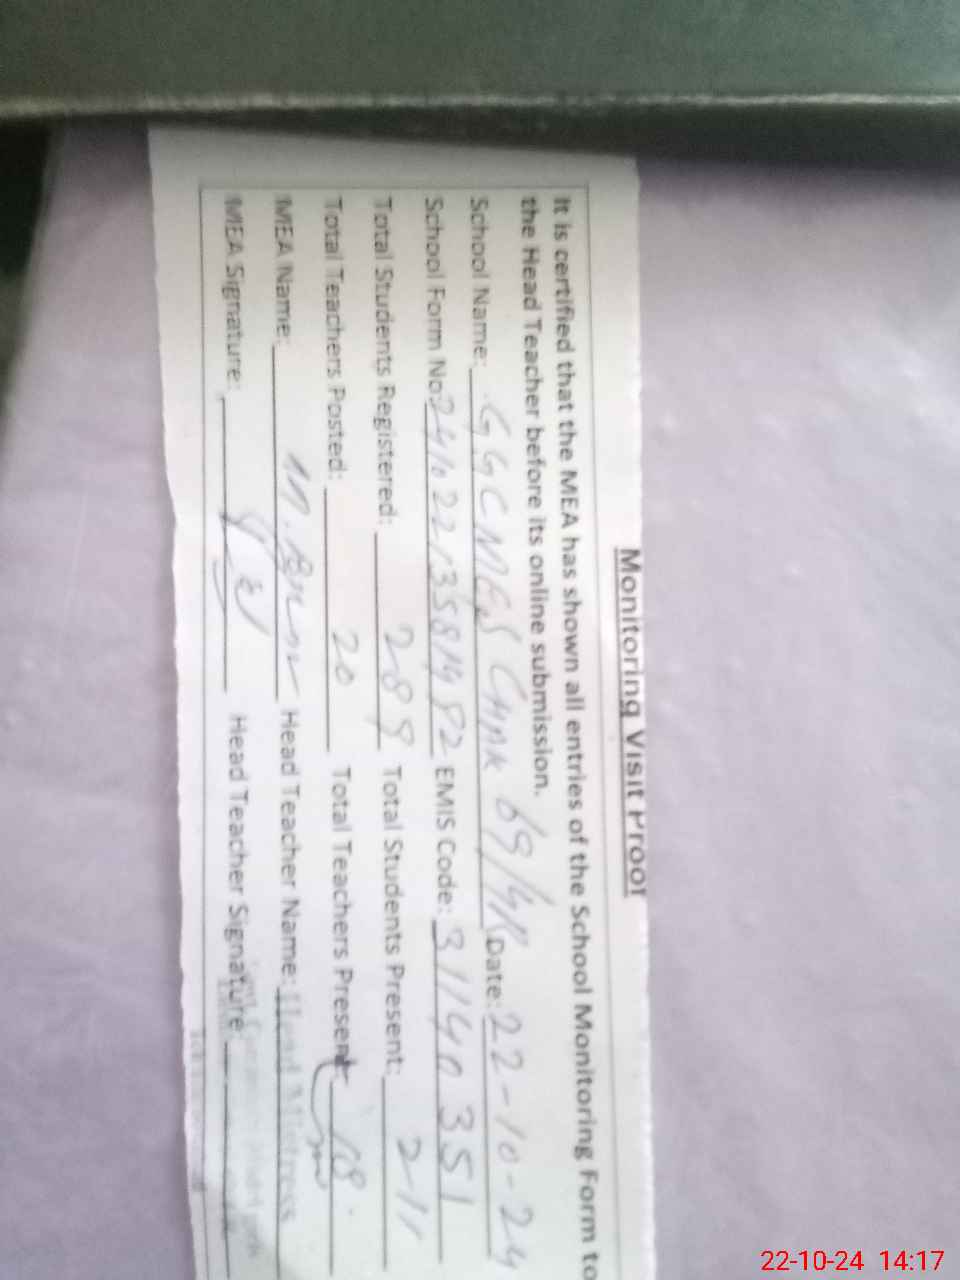 Monitoring Visit Proof
It is certified that the MEA has shown all entries of the School Monitoring Form to
the Head Teacher before its online submission.
School Name: GGCMES CHAK 69/4R Date: 22-10-24
School Form No: EMIS Code: 31140351
Total Students Registered: 289 Total Students Present: 211
Total Teachers Posted: 20 Total Teachers Present: 18
MEA Name: Head Teacher Name: Head Mistress
MEA Signature: Head Teacher Signature:
22-10-24 14:17